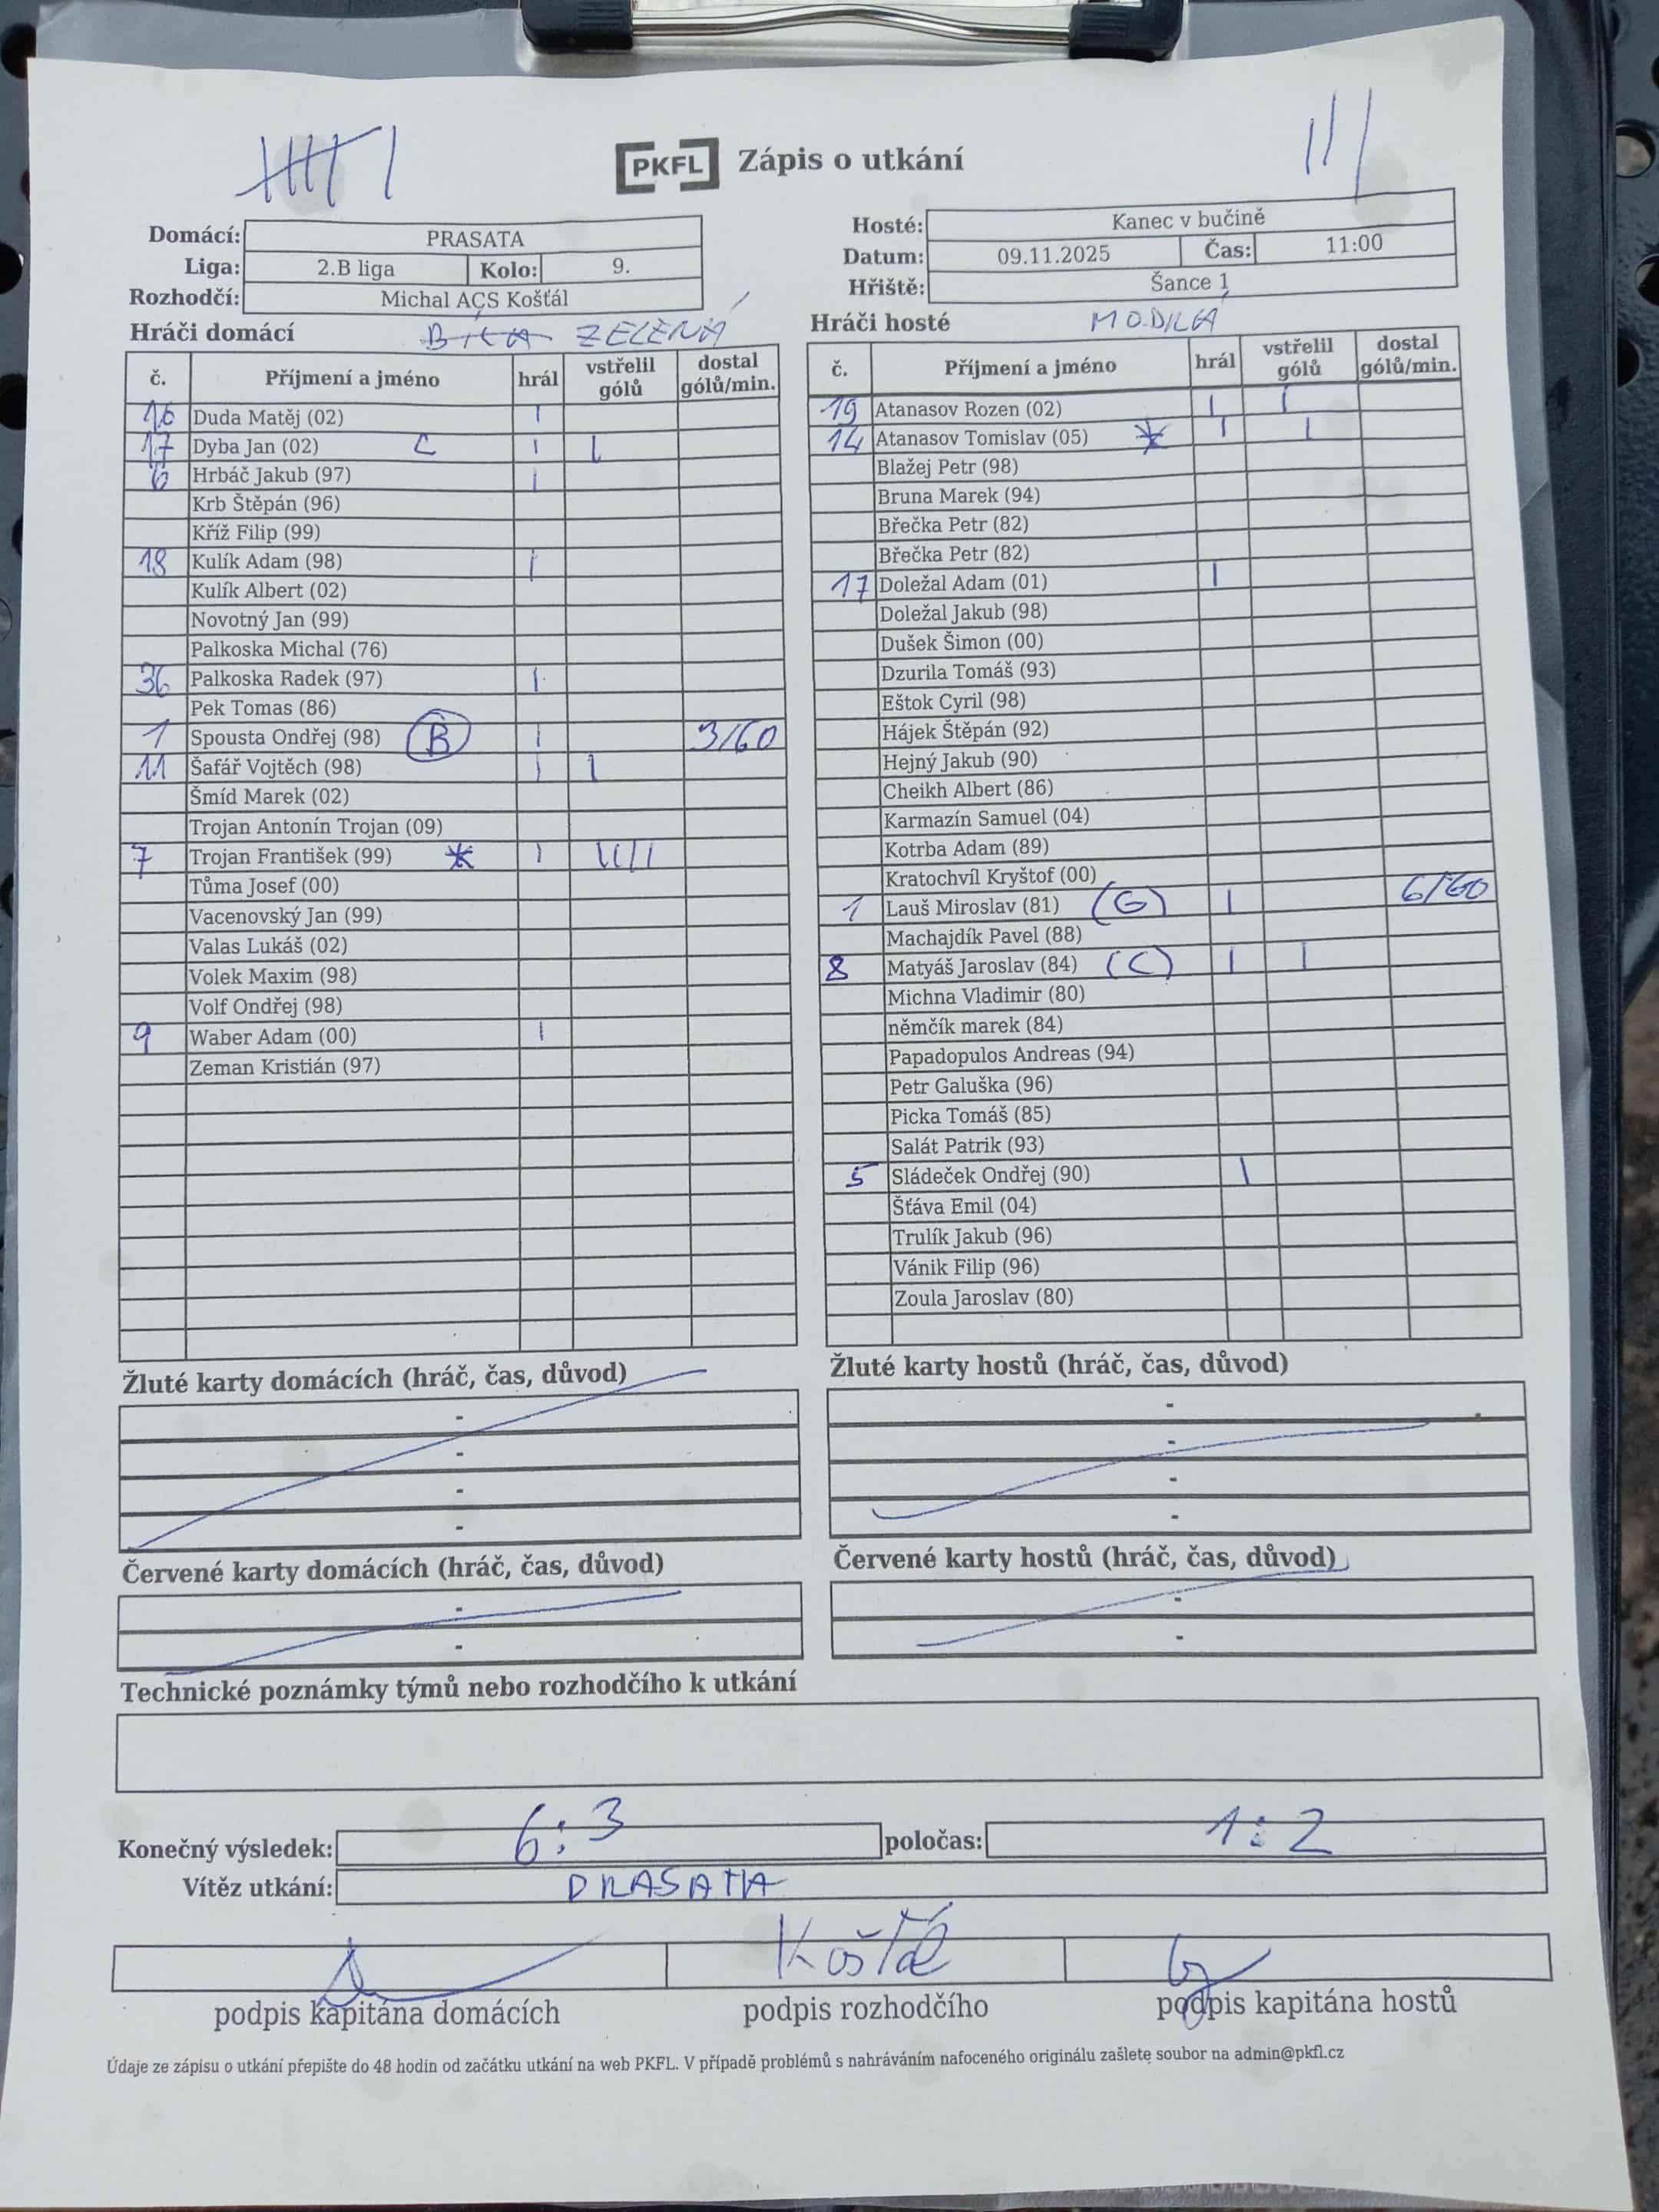 PKFL Zápis o utkání
Domácí: PRASATA
Liga: 2.B liga Kolo: 9.
Rozhodčí: Michal AÇS Košťál
Hosté: Kanec v bučině
Datum: 09.11.2025 Čas: 11:00
Hřiště: Šance 1
Hráči domácí ZELENÁ
č. Příjmení a jméno hrál vstřelil gólů dostal gólů/min.
16 Duda Matěj (02) I
17 Dyba Jan (02) C I I
6 Hrbáč Jakub (97) I
Krb Štěpán (96)
Kříž Filip (99)
18 Kulík Adam (98) I
Kulík Albert (02)
Novotný Jan (99)
Palkoska Michal (76)
36 Palkoska Radek (97) I
Pek Tomas (86)
1 Spousta Ondřej (98) B I 3/60
11 Šafář Vojtěch (98) I I
Šmíd Marek (02)
Trojan Antonín Trojan (09)
7 Trojan František (99) * I IIII
Tůma Josef (00)
Vacenovský Jan (99)
Valas Lukáš (02)
Volek Maxim (98)
Volf Ondřej (98)
9 Waber Adam (00) I
Zeman Kristián (97)
Hráči hosté MODRÁ
č. Příjmení a jméno hrál vstřelil gólů dostal gólů/min.
19 Atanasov Rozen (02) I I
14 Atanasov Tomislav (05) * I I
Blažej Petr (98)
Bruna Marek (94)
Břečka Petr (82)
Břečka Petr (82)
17 Doležal Adam (01) I
Doležal Jakub (98)
Dušek Šimon (00)
Dzurila Tomáš (93)
Eštok Cyril (98)
Hájek Štěpán (92)
Hejný Jakub (90)
Cheikh Albert (86)
Karmazín Samuel (04)
Kotrba Adam (89)
Kratochvíl Kryštof (00)
1 Lauš Miroslav (81) (G) I 6/60
Machajdík Pavel (88)
8 Matyáš Jaroslav (84) (C) I I
Michna Vladimir (80)
němčík marek (84)
Papadopulos Andreas (94)
Petr Galuška (96)
Picka Tomáš (85)
Salát Patrik (93)
5 Sládeček Ondřej (90) I
Šťáva Emil (04)
Trulík Jakub (96)
Vánik Filip (96)
Zoula Jaroslav (80)
Žluté karty domácích (hráč, čas, důvod)
-
-
-
-
Žluté karty hostů (hráč, čas, důvod)
-
-
-
-
Červené karty domácích (hráč, čas, důvod)
-
-
Červené karty hostů (hráč, čas, důvod)
-
-
Technické poznámky týmů nebo rozhodčího k utkání
Konečný výsledek: 6:3 poločas: 1:2
Vítěz utkání: PRASATA
Košťál
podpis kapitána domácích podpis rozhodčího podpis kapitána hostů
Údaje ze zápisu o utkání přepište do 48 hodin od začátku utkání na web PKFL. V případě problémů s nahráváním nafoceného originálu zašlete soubor na admin@pkfl.cz